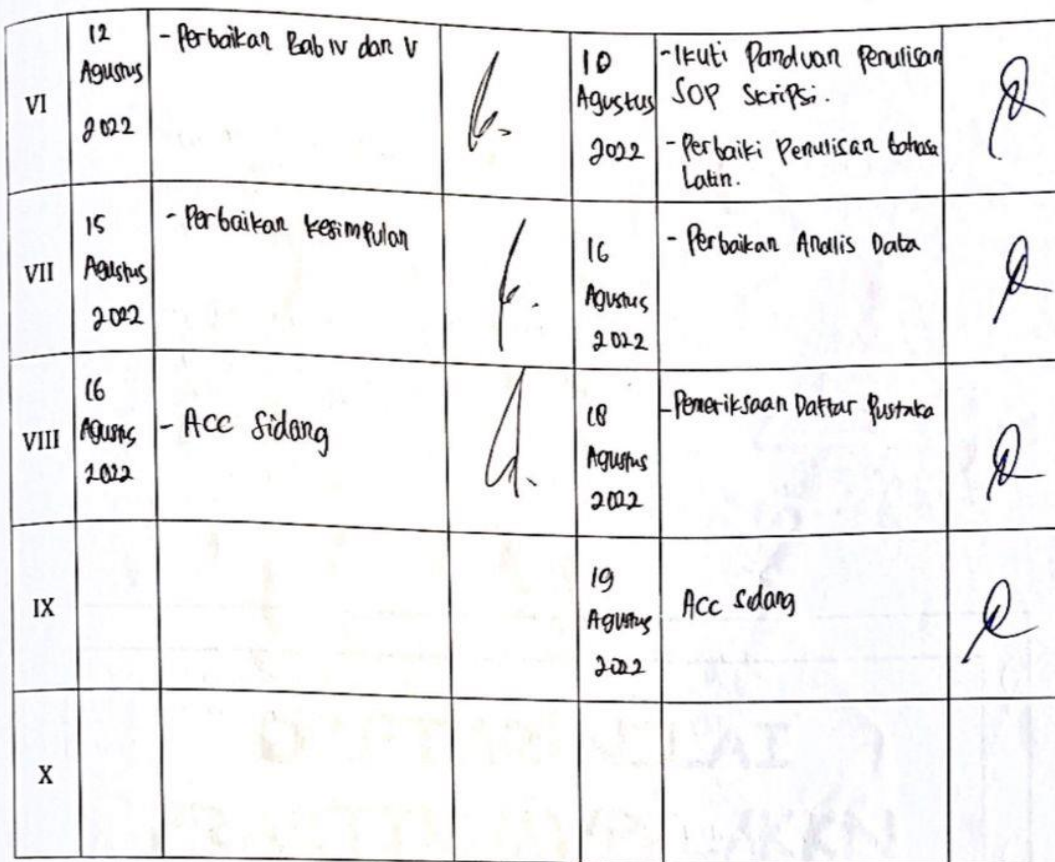 VI
12
Agustus
2022
- Perbaikan Bab IV dan V
10
Agustus
2022
- Ikuti Panduan Penulisan
SOP Skripsi.
- Perbaiki Penulisan bahasa
Latin.
VII
15
Agustus
2022
- Perbaikan kesimpulan
16
Agustus
2022
- Perbaikan Analis Data
VIII
16
Agustus
2022
- Acc Sidang
18
Agustus
2022
- Pemeriksaan Daftar Pustaka
IX
19
Agustus
2022
Acc Sidang
X